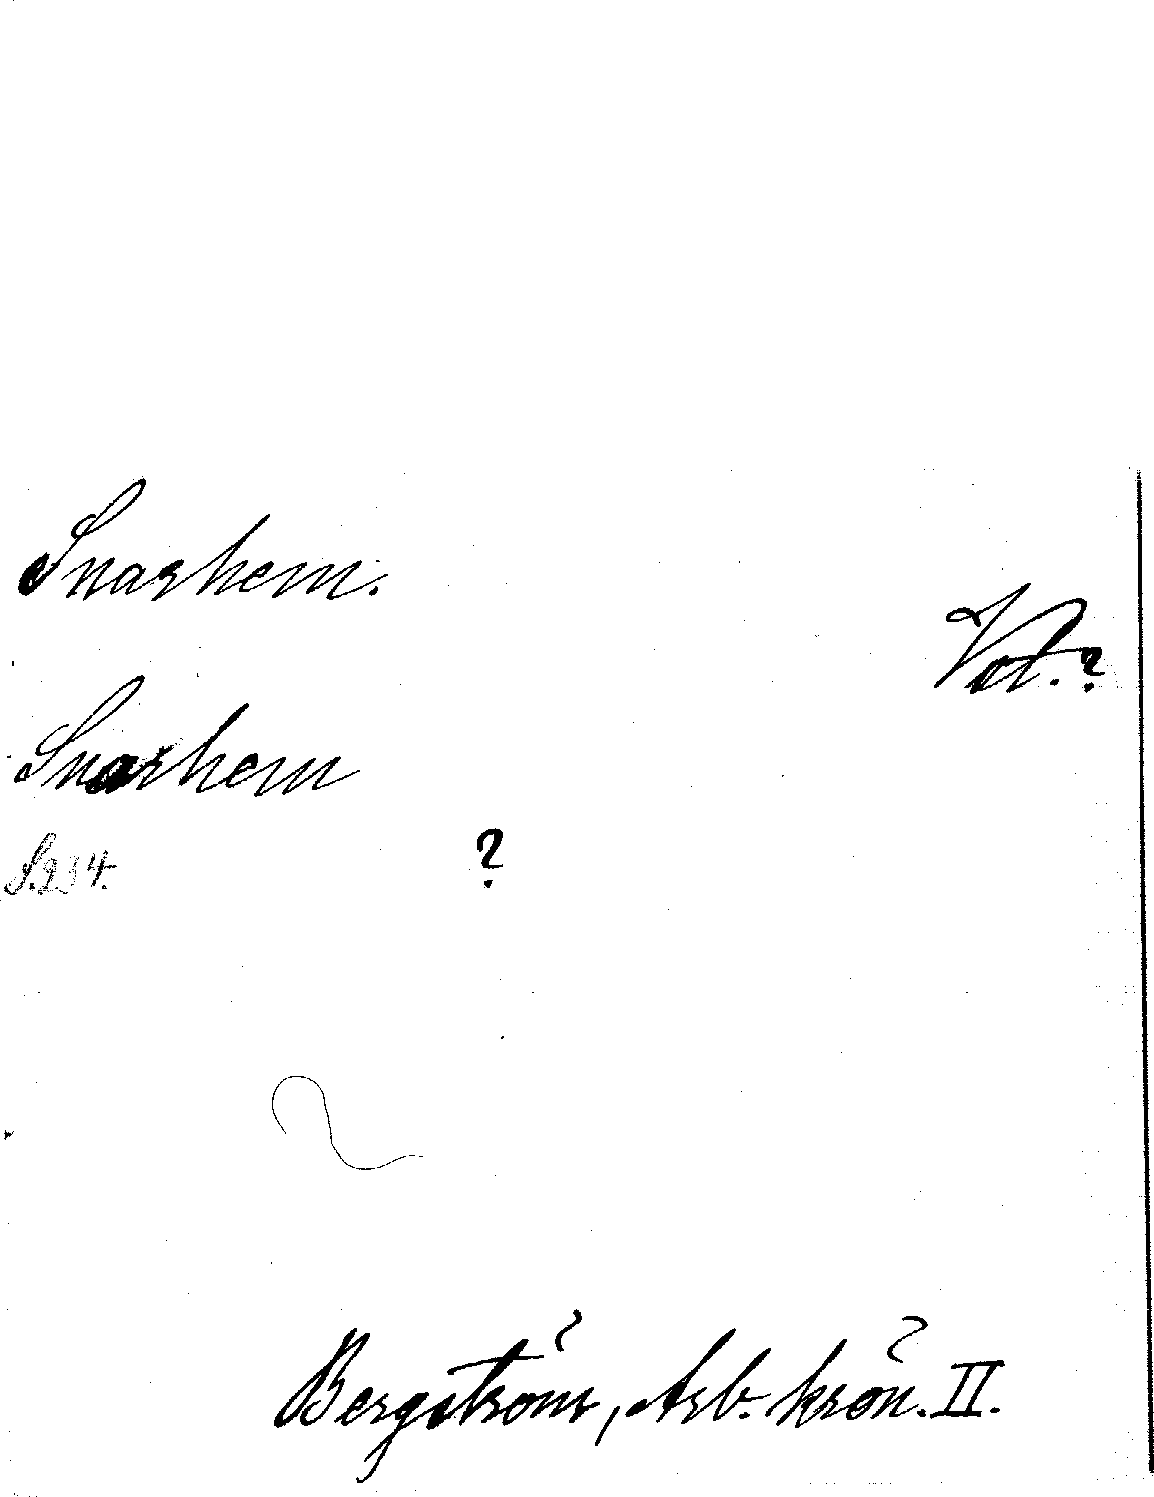 Snarhem.
Vot.?
Snarhem
S.234.
?
Bergström, Arb. krön. II.